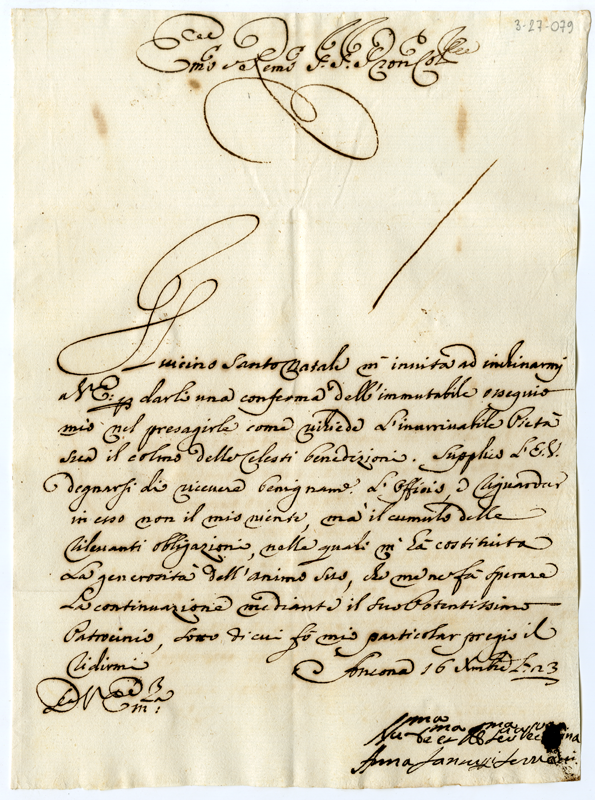 3-27-079
Em̃o e Rem̃o
Il vicino Santo Natale m'invita ad inchinarmi
a V. E: e darle una conferma dell'immutabile ossequio
mio nel presagirle come richiede l'inarrivabile Pietà
sua il colmo delle Celesti benedizioni. Supplico l'E.V.
degnarsi di ricevere benigname. l'Officio, e riguardar
in esso non il mio niente, ma il cumulo delle
rilevanti obligazioni, nelle quali m'hà costituita
la generosità dell'animo suo, che me ne fà sperare
la continuazione mediante il suo Potentissimo
Patrocinio, sotto di cui fò mio particolar pregio il
ridirmi
Ancona 16 Xmbre
Anna